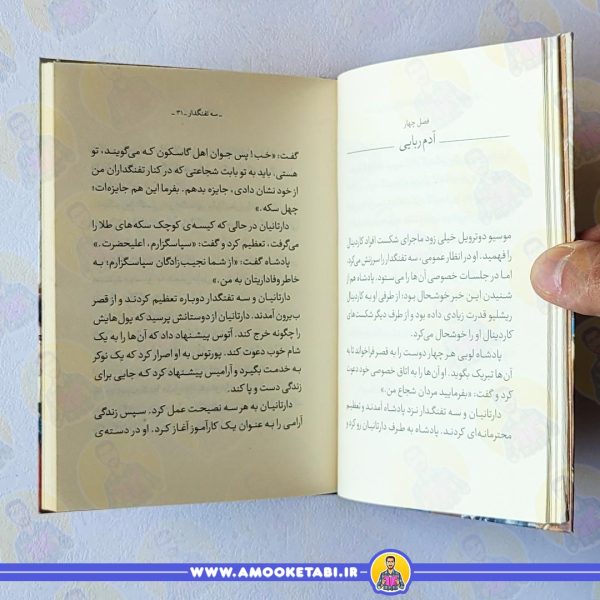 فصل چهار
آدم‌ربایی
موسیو دوترویل خیلی زود ماجرای شکست افراد کاردینال
را فهمید. او در انظار عمومی، سه تفنگدار را سرزنش می‌کرد،
اما در جلسات خصوصی آن‌ها را می‌ستود. پادشاه هم از
شنیدن این خبر خوشحال بود؛ از طرفی او به کاردینال
ریشلیو قدرت زیادی داده بود و از طرف دیگر شکست‌های
کاردینال او را خوشحال می‌کرد.
پادشاه لویی هر چهار دوست را به قصر فراخواند تا به
آن‌ها تبریک بگوید. او آن‌ها را به اتاق خصوصی خود دعوت
کرد و گفت: «بفرمایید مردان شجاع من.»
دارتانیان و سه تفنگدار نزد پادشاه آمدند و تعظیم
محترمانه‌ای کردند. پادشاه به طرف دارتانیان رو کرد و
ـ سه تفنگدار ـ ۳۱ ـ
گفت: «خب! پس جوان اهل گاسکون که می‌گویند، تو
هستی. باید به تو بابت شجاعتی که در کنار تفنگداران من
از خود نشان دادی، جایزه بدهم. بفرما این هم جایزه‌ات؛
چهل سکه.»
دارتانیان در حالی که کیسه‌ی کوچک سکه‌های طلا را
می‌گرفت، تعظیم کرد و گفت: «سپاسگزارم، اعلیحضرت.»
پادشاه گفت: «از شما نجیب‌زادگان سپاسگزارم؛ به
خاطر وفاداریتان به من.»
دارتانیان و سه تفنگدار دوباره تعظیم کردند و از قصر
بیرون آمدند. دارتانیان از دوستانش پرسید که پول‌هایش
را چگونه خرج کند. آتوس پیشنهاد داد که آن‌ها را به یک
شام خوب دعوت کند. پورتوس به او اصرار کرد که یک نوکر
به خدمت بگیرد و آرامیس پیشنهاد کرد که جایی برای
زندگی دست و پا کند.
دارتانیان به هر سه نصیحت عمل کرد. سپس زندگی
آرامی را به عنوان یک کارآموز آغاز کرد. او در دسته‌ی
WWW.AMOOKETABI.IR